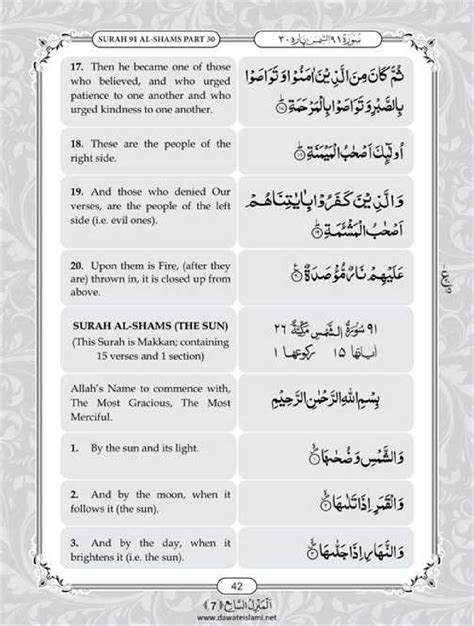 SURAH 91 AL-SHAMS PART 30
سُوْرَۃُ ۹۱ الشَّمْس پارہ ۳۰
17. Then he became one of those
who believed, and who urged
patience to one another and who
urged kindness to one another.
ثُمَّ كَانَ مِنَ الَّذِيْنَ اٰمَنُوْا وَ تَوَاصَوْا
بِالصَّبْرِ وَ تَوَاصَوْا بِالْمَرْحَمَةِ
18. These are the people of the
right side.
اُولٰٓئِكَ اَصْحٰبُ الْمَيْمَنَةِ
19. And those who denied Our
verses, are the people of the left
side (i.e. evil ones).
وَ الَّذِيْنَ كَفَرُوْا بِاٰيٰتِنَا هُمْ
اَصْحٰبُ الْمَشْـَٔمَةِ
20. Upon them is Fire, (after they
are) thrown in, it is closed up from
above.
عَلَيْهِمْ نَارٌ مُّؤْصَدَةٌ
SURAH AL-SHAMS (THE SUN)
(This Surah is Makkan; containing
15 verses and 1 section)
۹۱ سُوْرَۃُ الشَّمْسِ مَكِّيَّةٌ ۲۶
اٰیاتھا ۱۵ رکوعھا ۱
Allah's Name to commence with,
The Most Gracious, The Most
Merciful.
بِسْمِ اللهِ الرَّحْمٰنِ الرَّحِيْمِ
1. By the sun and its light.
وَ الشَّمْسِ وَ ضُحٰىهَا
2. And by the moon, when it
follows it (the sun).
وَ الْقَمَرِ اِذَا تَلٰىهَا
3. And by the day, when it
brightens it (i.e. the sun).
وَ النَّهَارِ اِذَا جَلّٰىهَا
42
اَلْمَنْزِلُ السَّابِع ﴿7﴾
www.dawateislami.net